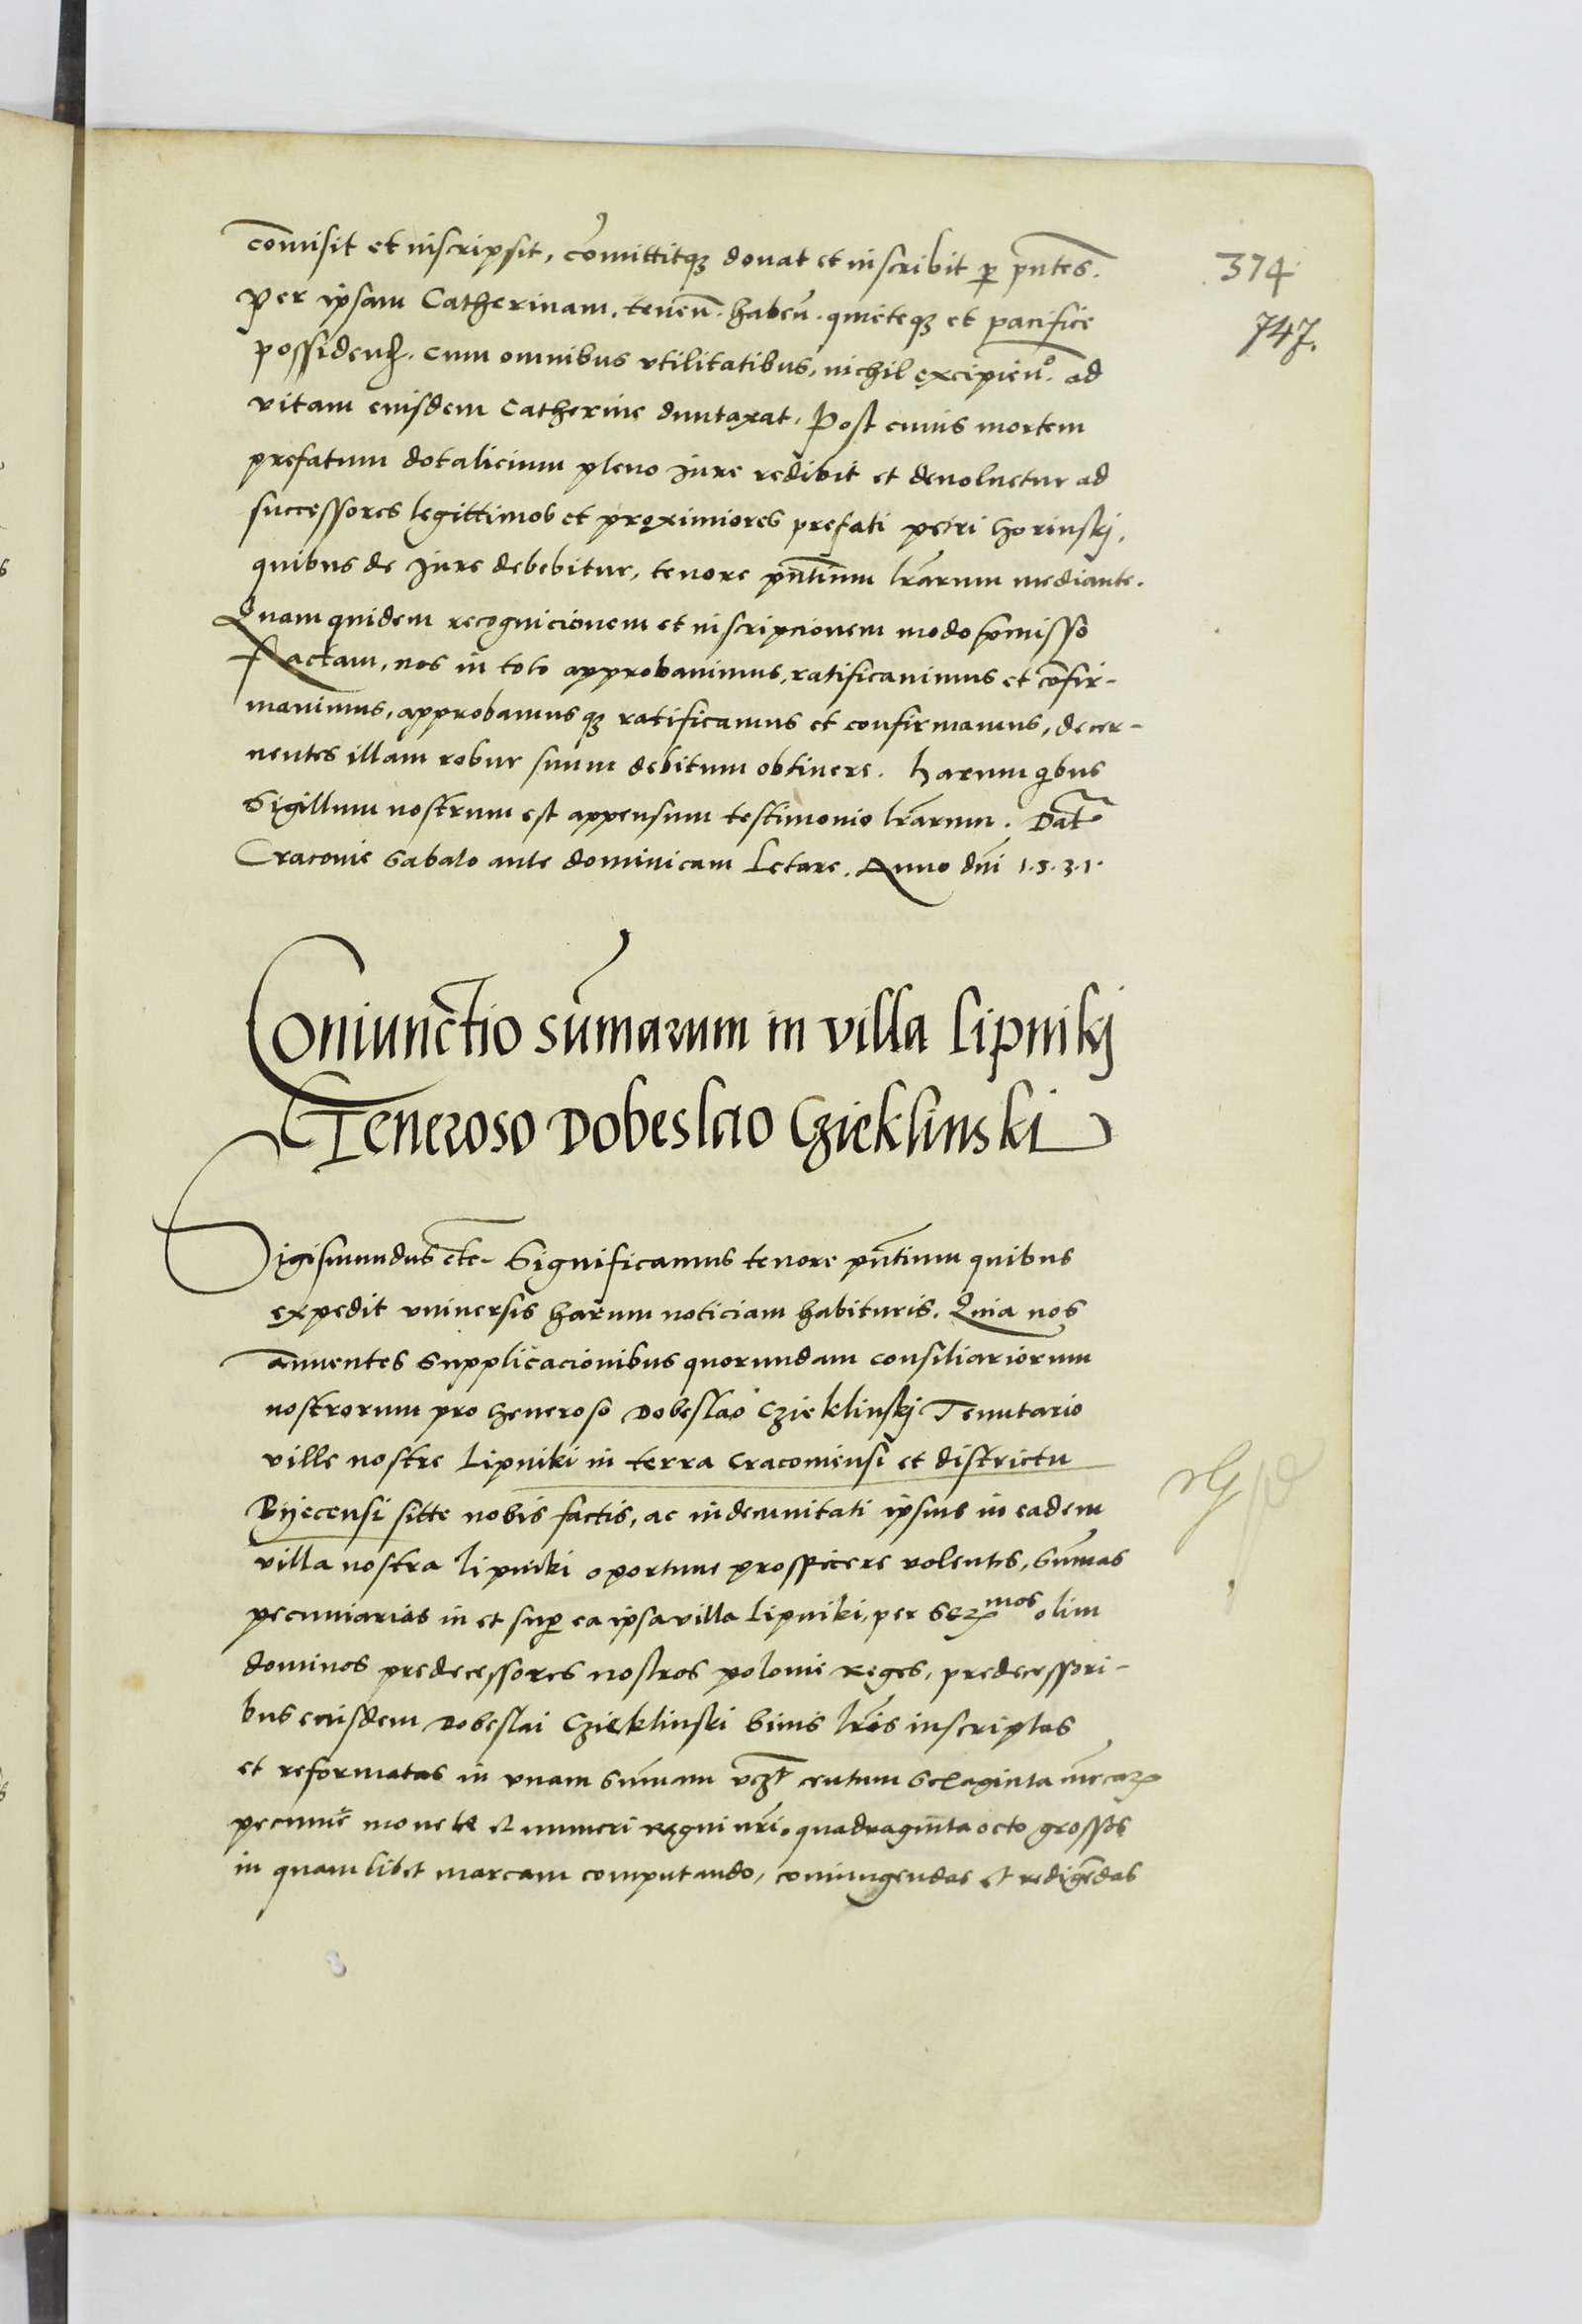 com̄isit et inscripsit, com̄ittitq₃ donat et inscribit p̱ pn̄tes.
374
Per ipsam Catherinam, tenen̄. haben̄. quieteq₃ et pacifice
747.
possidenꝶ. cum omnibus vtilitatibus, nichil excipienº. ad
vitam eiusdem Catherine duntaxat. Post cuius mortem
prefatum dotalicium pleno iure redibit et deuoluetur ad
successores legittimos et proximiores prefati petri horinskj,
quibus de iure debebitur, tenore pn̄tium lr̄arum mediante.
Quam quidem recognicionem et inscripcionem modo p̄misso
Factam, nos in toto approbauimus, ratificauimus et cōfir-
mauimus, approbamus q₃ ratificamus et confirmamus, decer-
nentes illam robur suum debitum obtinere. harum qibus
Sigillum nostrum est appensum testimonio lr̄arum. Dat̄
Cracouie Sabato ante dominicam Letare. Anno dn̄i 1.5.3.1.
Coniunctio sum̄arum in villa Lipnikj
Generoso Dobeslao Czieklinski
Sigismundus etc̄- Significamus tenore pn̄tium quibus
expedit vniuersis harum noticiam habituris. Quia nos
annuentes Supplicacionibus quorundam consiliariorum
nostrorum pro Generoso Dobeslao Czieklinskj Tenutario
ville nostre Lipniki in terra Cracouiensi et districtu
Byecensi sitte nobis factis, ac indemnitati ipsius in eadem
villa nostra Lipniki oportune prospicere volentes, Sum̄as
pecuniarias in et sup̱ ea ipsa villa Lipniki, per Serᵐᵒˢ olim
dominos predecessores nostros polonie Reges, predecessori-
bus eiusdem Dobeslai Czieklinski binis lr̄is inscriptas
et reformatas in vnam Sum̄am vcz̄t centum Sexaginta mr̄caꝝ
pecunie monete et numeri Regni nr̄i, quadraginta octo grossos
in quamlibet marcam computando, coniungendas et redigēdas